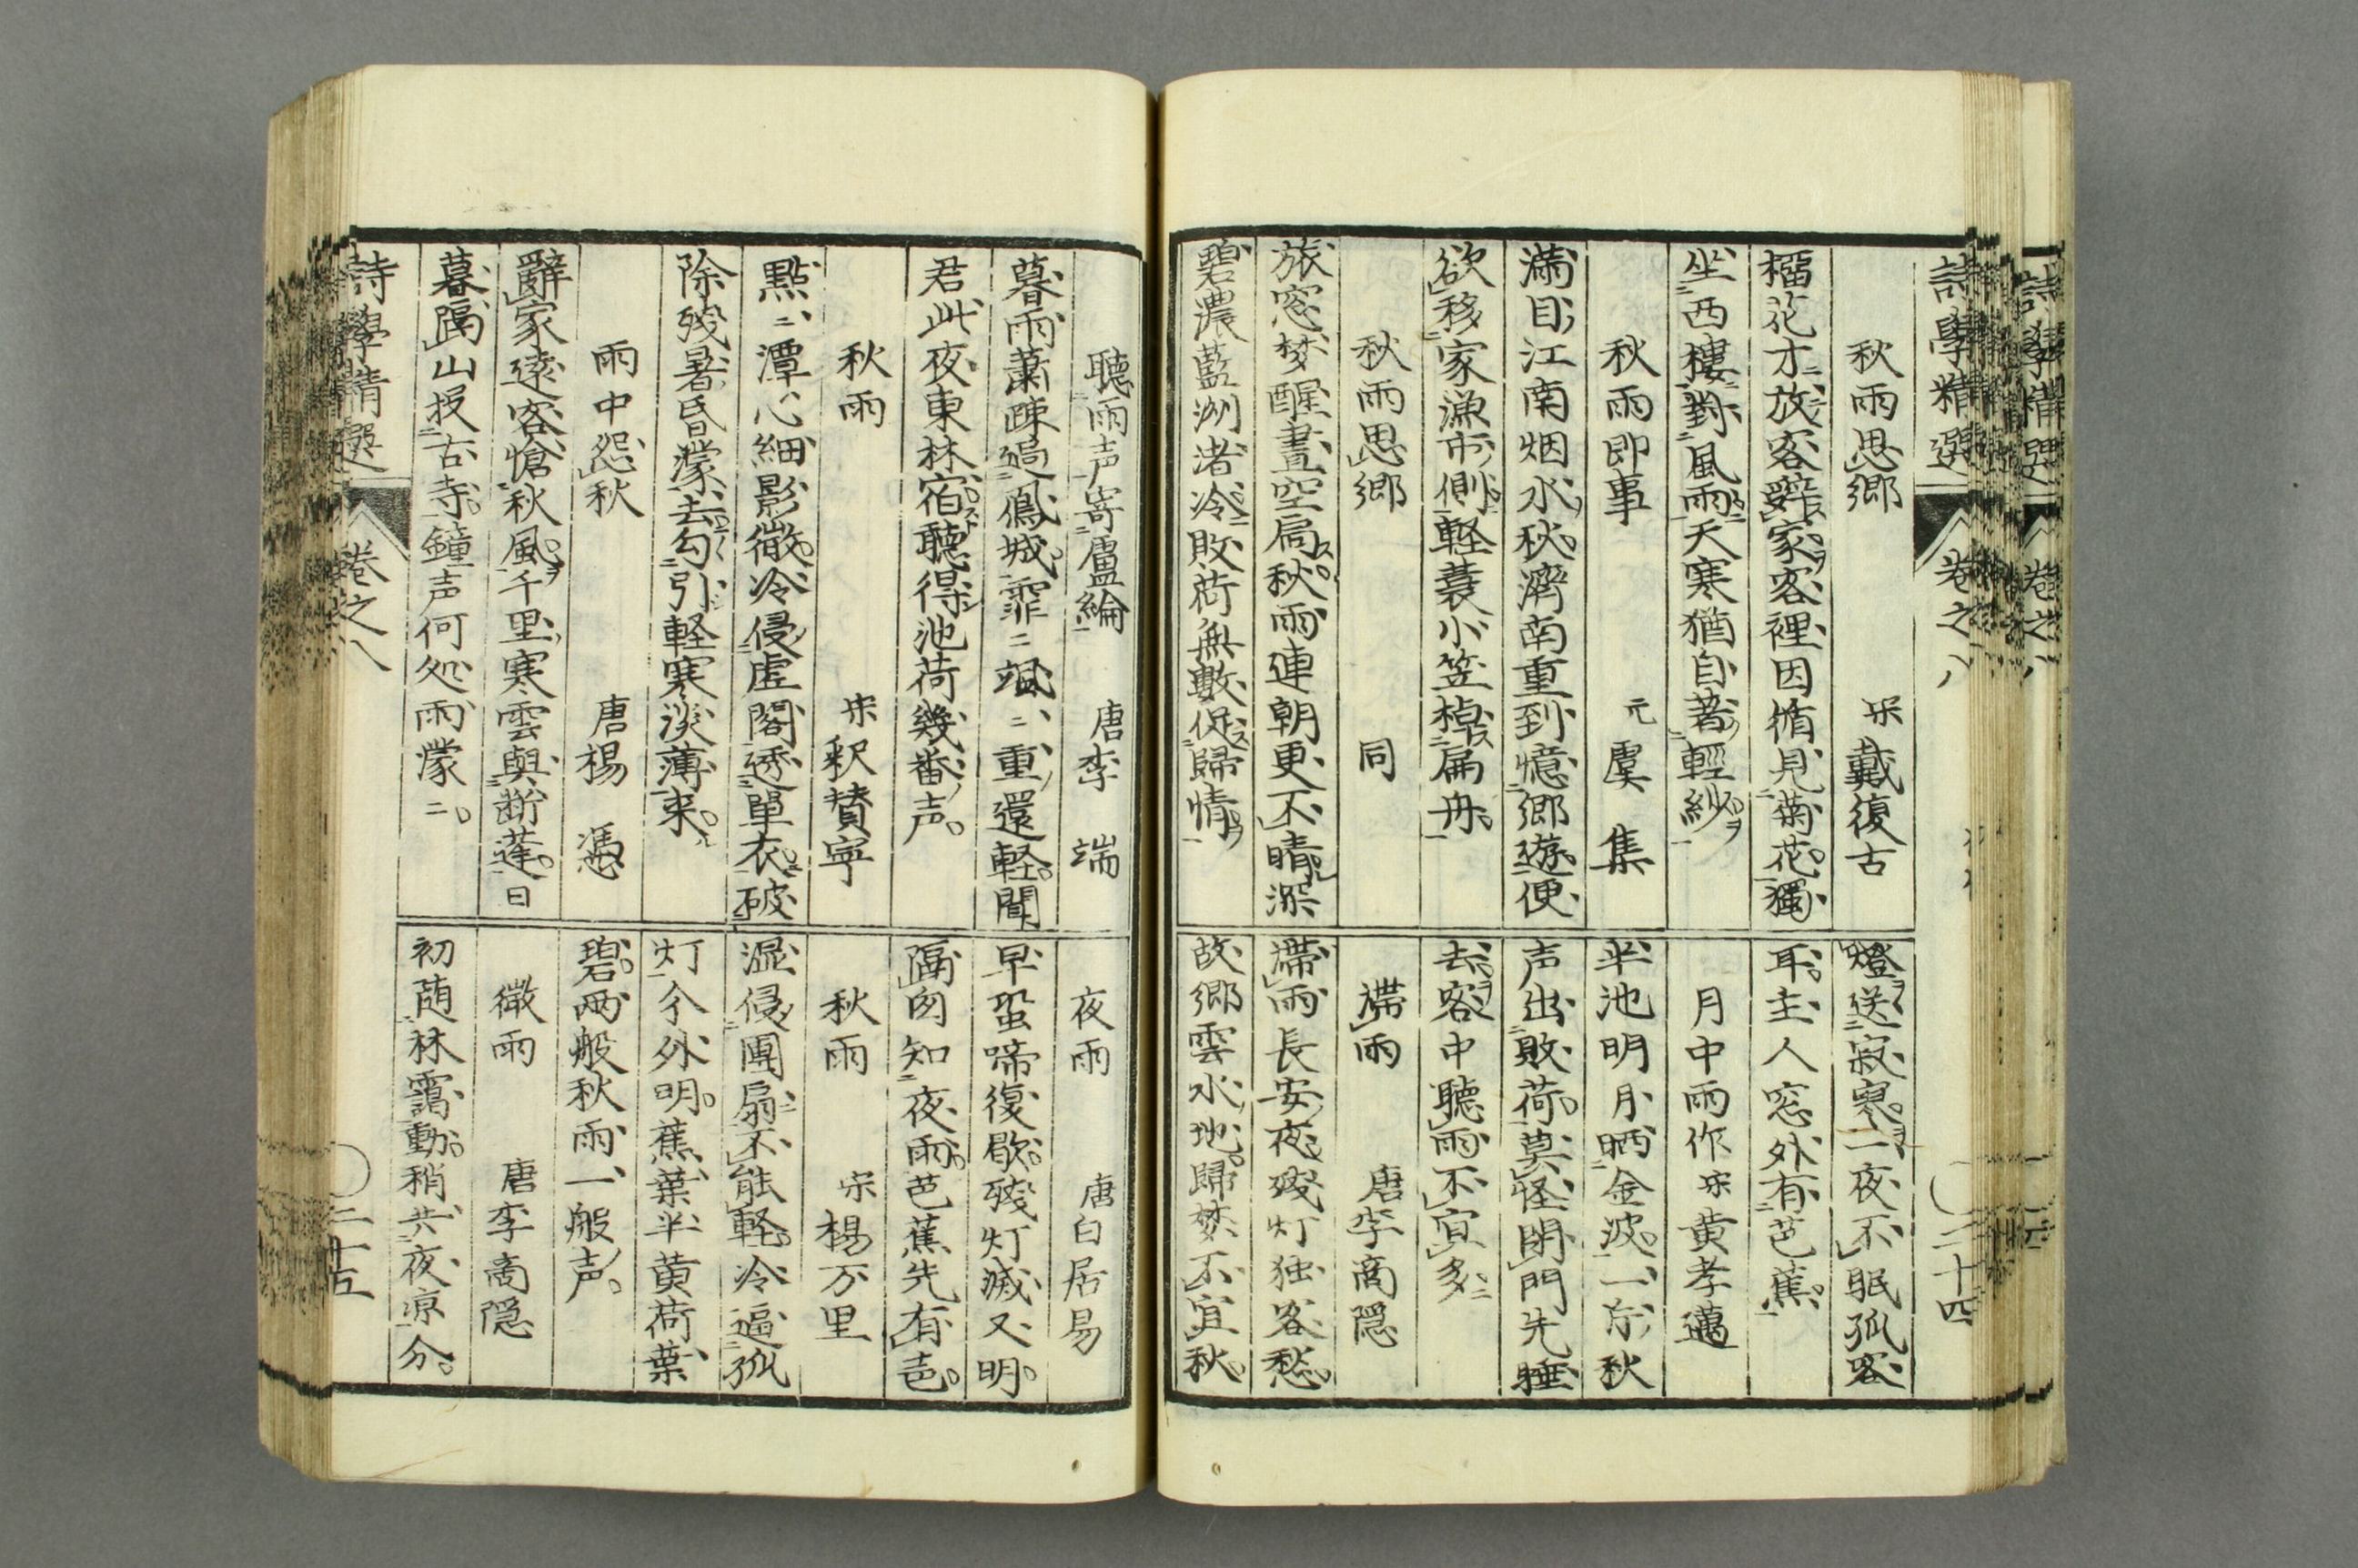 詩學精選　卷之八　二十四
秋雨思郷　宋　戴復古
榴花才放客辭家客裡因循見菊花獨
坐西樓對風雨天寒猶自著輕紗
秋雨即事　元　虞　集
滿目江南烟水秋濟南重到憶郷遊便
欲移家漁市側軽蓑小笠棹扁舟
秋雨思郷　同
旅窓梦醒晝空局秋雨連朝更不晴深
碧濃藍洲渚冷敗荷無數促歸情
燈送寂寥一夜不眠孤客
耳主人窓外有芭蕉
月中雨作　宋黄孝邁
半池明月晒金波一片秋
声出敗荷莫怪閉門先睡
去客中聽雨不宜多
滞雨　唐李商隠
滞雨長安夜残灯独客愁
故郷雲水地歸梦不宜秋
聽雨声寄盧綸　唐李　端
暮雨蕭踈過鳳城霏〻颯〻重還軽聞
君此夜東林宿聽得池荷幾番声
秋雨　宋釈賛寧
點〻潭心細影微冷侵虚閣透單衣破
除残暑昏濛去勾引軽寒淡薄来
雨中怨秋　唐楊　憑
辭家遠客愴秋風千里寒雲與断蓬日
暮隔山投古寺鐘声何処雨濛〻
夜雨　唐白居易
早蛩啼復歇残灯滅又明
隔囱知夜雨芭蕉先有声
秋雨　宋楊万里
湿侵團扇不能軽冷逼孤
灯分外明蕉葉半黄荷葉
碧両般秋雨一般声
微雨　唐李商隠
初随林靄動稍共夜凉分
詩學精選　卷之八　二十五